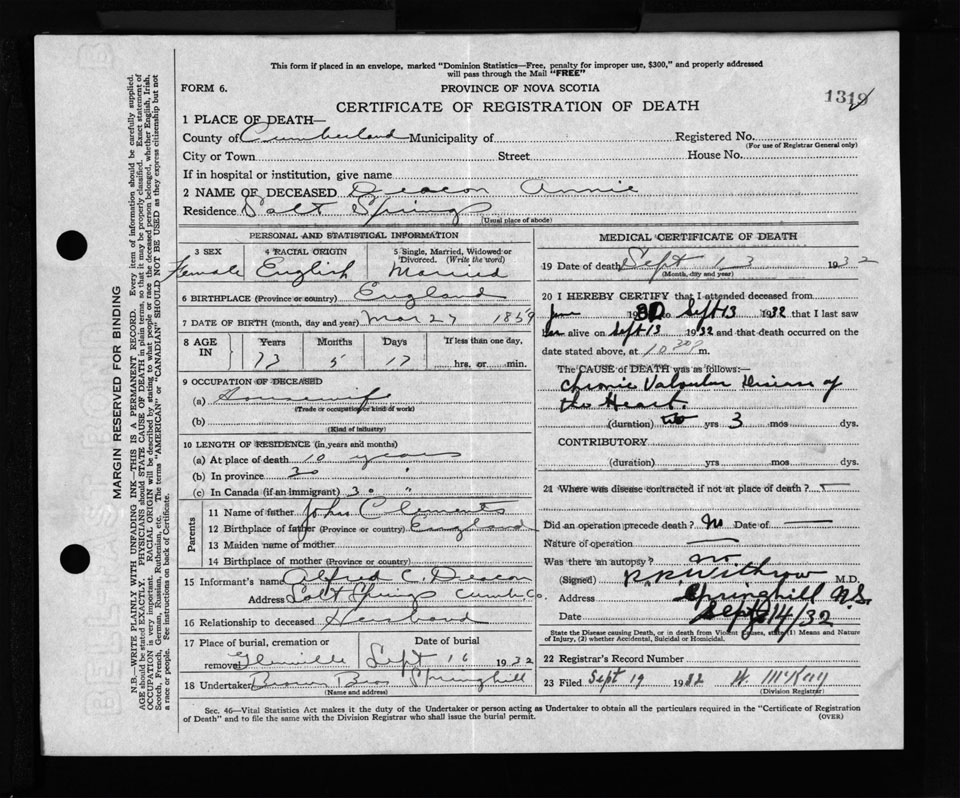 This form if placed in an envelope, marked "Dominion Statistics—Free, penalty for improper use, $300," and properly addressed
will pass through the Mail "FREE"
FORM 6.
PROVINCE OF NOVA SCOTIA
1319
CERTIFICATE OF REGISTRATION OF DEATH
1 PLACE OF DEATH—
County of Cumberland Municipality of Registered No.
(For use of Registrar General only)
City or Town Street House No.
If in hospital or institution, give name
2 NAME OF DECEASED Deacon Annie
Residence Salt Springs
(Usual place of abode)
PERSONAL AND STATISTICAL INFORMATION
3 SEX 4 RACIAL ORIGIN 5 Single, Married, Widowed or
Divorced. (Write the word)
Female English Married
6 BIRTHPLACE (Province or country) England
7 DATE OF BIRTH (month, day and year) Mar 27 1859
8 AGE IN Years Months Days If less than one day,
73 5 17 hrs. or min.
9 OCCUPATION OF DECEASED
(a) Housewife
(Trade or occupation or kind of work)
(b)
(Kind of industry)
10 LENGTH OF RESIDENCE (in years and months)
(a) At place of death 10 years
(b) In province 30 "
(c) In Canada (if an immigrant) 30 "
Parents
11 Name of father John Clements
12 Birthplace of father (Province or country) England
13 Maiden name of mother
14 Birthplace of mother (Province or country)
15 Informant's name Alfred C. Deacon
Address Salt Springs Cumb. Co.
16 Relationship to deceased Husband
17 Place of burial, cremation or Date of burial
removal Glenville Sept 16 1932
18 Undertaker Brown Bros Springhill
(Name and address)
MEDICAL CERTIFICATE OF DEATH
19 Date of death Sept 13 1932
(Month, day and year)
20 I HEREBY CERTIFY that I attended deceased from
June 30 to Sept 13 1932 that I last saw
her alive on Sept 13 1932 and that death occurred on
date stated above, at 10 30 P m.
The CAUSE of DEATH was as follows:—
Chronic Valvular Disease of
the Heart.
(duration) yrs 3 mos dys.
CONTRIBUTORY
(duration) yrs mos dys.
21 Where was disease contracted if not at place of death? —
Did an operation precede death? No Date of —
Nature of operation —
Was there an autopsy? no
(Signed) R.P. Withrow M.D.
Address Springhill N.S.
Date Sept 14/32
State the Disease Causing Death, or in death from Violent Causes, state (1) Means and Nature
of Injury, (2) whether Accidental, Suicidal or Homicidal.
22 Registrar's Record Number
23 Filed Sept 19 1932 W. McKay
(Division Registrar)
Sec. 46—Vital Statistics Act makes it the duty of the Undertaker or person acting as Undertaker to obtain all the particulars required in the "Certificate of Registration
of Death" and to file the same with the Division Registrar who shall issue the burial permit.
(OVER)
MARGIN RESERVED FOR BINDING
N.B.—WRITE PLAINLY WITH UNFADING INK—THIS IS A PERMANENT RECORD. Every item of information should be carefully supplied.
AGE should be stated EXACTLY. PHYSICIANS should STATE CAUSE OF DEATH in plain terms, so that it may be properly classified. Exact statement of
OCCUPATION is very important. RACIAL ORIGIN will be described by stating to what people or race the deceased person belonged, whether English, Irish,
Scotch, French, German, Russian, Ruthenian, etc. The terms "AMERICAN" or "CANADIAN" SHOULD NOT BE USED as they express citizenship but not
a race or people. See instructions on back of Certificate.